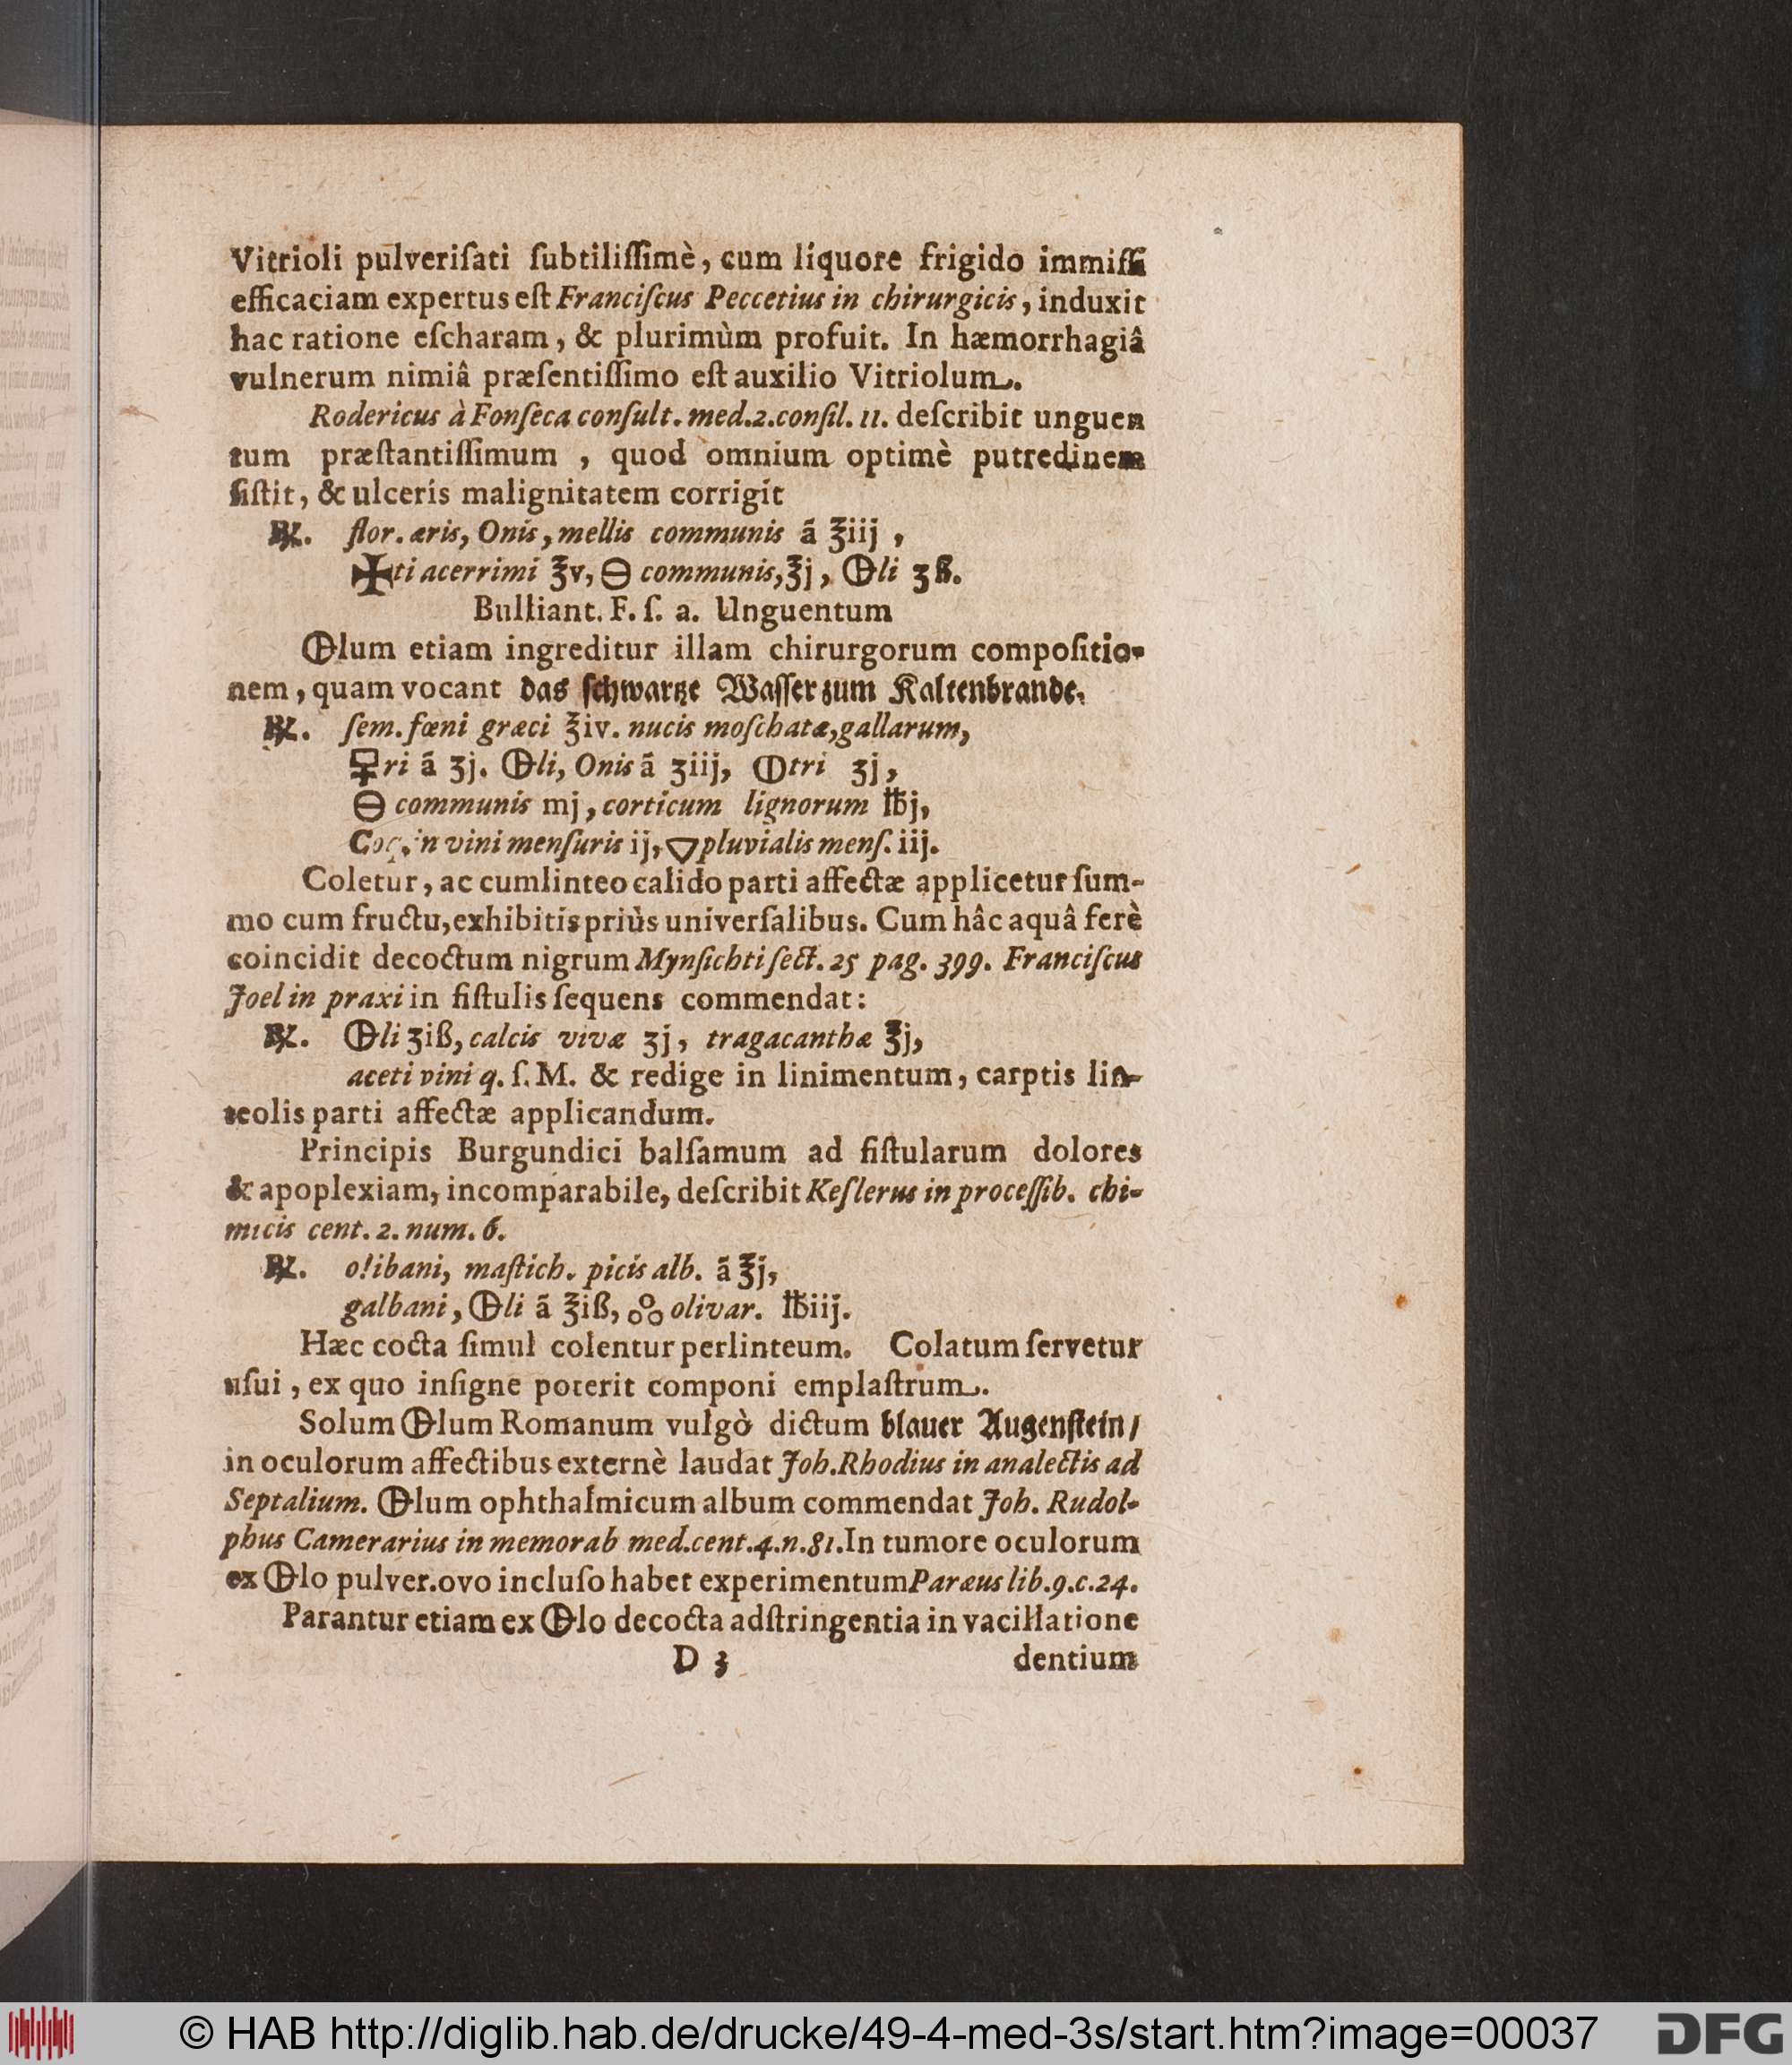 Vitrioli pulveriſati ſubtiliſſimè, cum liquore frigido immiſſi
efficaciam expertus eſt Franciſcus Peccetius in chirurgicis, induxit
hac ratione eſcharam, & plurimùm profuit. In hæmorrhagiâ
vulnerum nimiâ præſentiſſimo eſt auxilio Vitriolum.
Rodericus à Fonſeca conſult. med. 2. conſil. 11. deſcribit unguen
tum præſtantiſſimum , quod omnium optimè putredinem
ſiſtit, & ulceris malignitatem corrigit
℞. flor. æris, Onis, mellis communis ã ℥iij ,
✠ti acerrimi ℥v, 🜔 communis, ℥j, 🜖li ʒß.
Bulliant. F. ſ. a. Unguentum
🜖lum etiam ingreditur illam chirurgorum compoſitio-
nem, quam vocant das ſchwartze Waſſer zum Kaltenbrande,
℞. ſem. fœni græci ℥iv. nucis moſchatæ, gallarum,
🜿ri ã ʒj. 🜖li, Onis ã ʒiij, 🜕tri ʒj,
🜔 communis mj, corticum lignorum ℔j,
Coq. in vini menſuris ij, 🜄 pluvialis menſ. iij.
Coletur, ac cum linteo calido parti affectæ applicetur ſum-
mo cum fructu, exhibitis priùs univerſalibus. Cum hâc aquâ ferè
coincidit decoctum nigrum Mynſichti ſect. 25 pag. 399. Franciſcus
Joel in praxi in fiſtulis ſequens commendat:
℞. 🜖li ʒiß, calcis vivæ ʒj, tragacanthæ ℥j,
aceti vini q. ſ. M. & redige in linimentum, carptis lin-
teolis parti affectæ applicandum.
Principis Burgundici balſamum ad fiſtularum dolores
& apoplexiam, incomparabile, deſcribit Keſlerus in proceſſib. chi-
micis cent. 2. num. 6.
℞. olibani, maſtich. picis alb. ã ℥j,
galbani, 🜖li ã ℥iß, 🝆 olivar. ℔iij.
Hæc cocta ſimul colentur per linteum. Colatum ſervetur
uſui, ex quo inſigne poterit componi emplaſtrum.
Solum 🜖lum Romanum vulgò dictum blauer Augenſtein/
in oculorum affectibus externè laudat Joh. Rhodius in analectis ad
Septalium. 🜖lum ophthalmicum album commendat Joh. Rudol-
phus Camerarius in memorab med. cent. 4. n. 81. In tumore oculorum
ex 🜖lo pulver. ovo incluſo habet experimentum Paræus lib. 9. c. 24.
Parantur etiam ex 🜖lo decocta adſtringentia in vacillatione
D 3 dentium
© HAB http://diglib.hab.de/drucke/49-4-med-3s/start.htm?image=00037
DFG